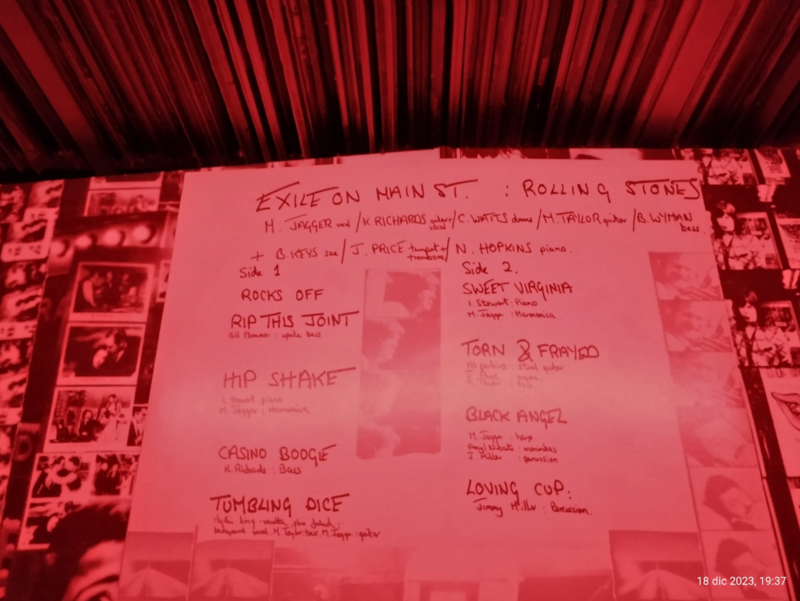 EXILE ON MAIN ST. : ROLLING STONES
M. JAGGER vocal / K. RICHARDS guitar vocal / C. WATTS drums / M. TAYLOR guitar / B. WYMAN bass
+ B. KEYS sax / J. PRICE trumpet + trombone / N. HOPKINS piano.
Side 1
ROCKS OFF
RIP THIS JOINT
Bill Plummer : upright bass
HIP SHAKE
I. Stewart piano
M. Jagger : harmonica
CASINO BOOGIE
K. Richards : Bass
TUMBLING DICE
background vocal. M. Taylor bass, M. Jagger : guitar
Side 2.
SWEET VIRGINIA
I. Stewart : Piano
M. Jagger : Harmonica
TORN & FRAYED
Al perkins : steel guitar
BLACK ANGEL
M. Jagger : harp
Amyl Nitrate : marimbas
J. Miller : percussion
LOVING CUP :
Jimmy Miller : Percussion.
18 dic 2023, 19:37